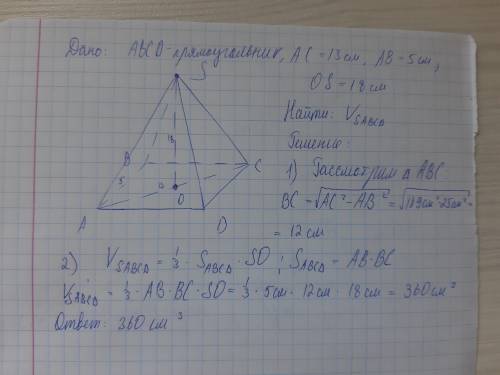 Дано: ABCD-прямоугольник, AC = 13 см, AB = 5 см,
OS = 18 см
Найти: V SABCD
Решение:
1) Рассмотрим △ ABC
BC = √AC² - AB² = √169см² - 25см² =
= 12 см
S
18
B
C
5
O
A
D
2) V SABCD = 1/3 · S ABCD · SO ; S ABCD = AB · BC
V SABCD = 1/3 · AB · BC · SO = 1/3 · 5 см · 12 см · 18 см = 360 см³
Ответ: 360 см³